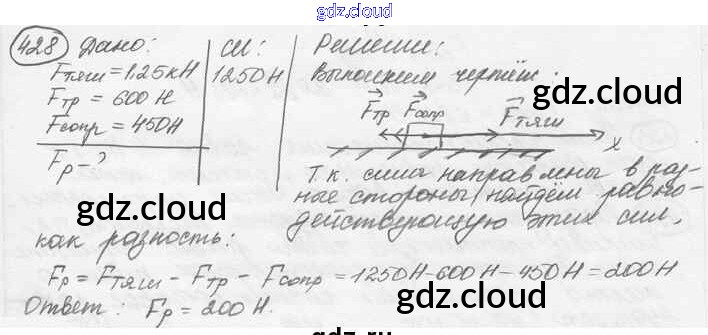 gdz.cloud
428 Дано:
Fтяги = 1,25 кН
Fтр = 600 Н
Fсопр = 450 Н
Fр - ?
СИ:
1250 Н
Решение:
Выполним чертёж:
gdz.cloud
Fтр Fсопр Fтяги
x
Т.к. силы направлены в раз-
ные стороны, найдём равно-
действующую этих сил,
gdz.cloud
gdz.cloud
как разность:
Fр = Fтяги - Fтр - Fсопр = 1250 Н - 600 Н - 450 Н = 200 Н
Ответ: Fр = 200 Н.
gdz.cloud
gdz.cloud
gdz.ru